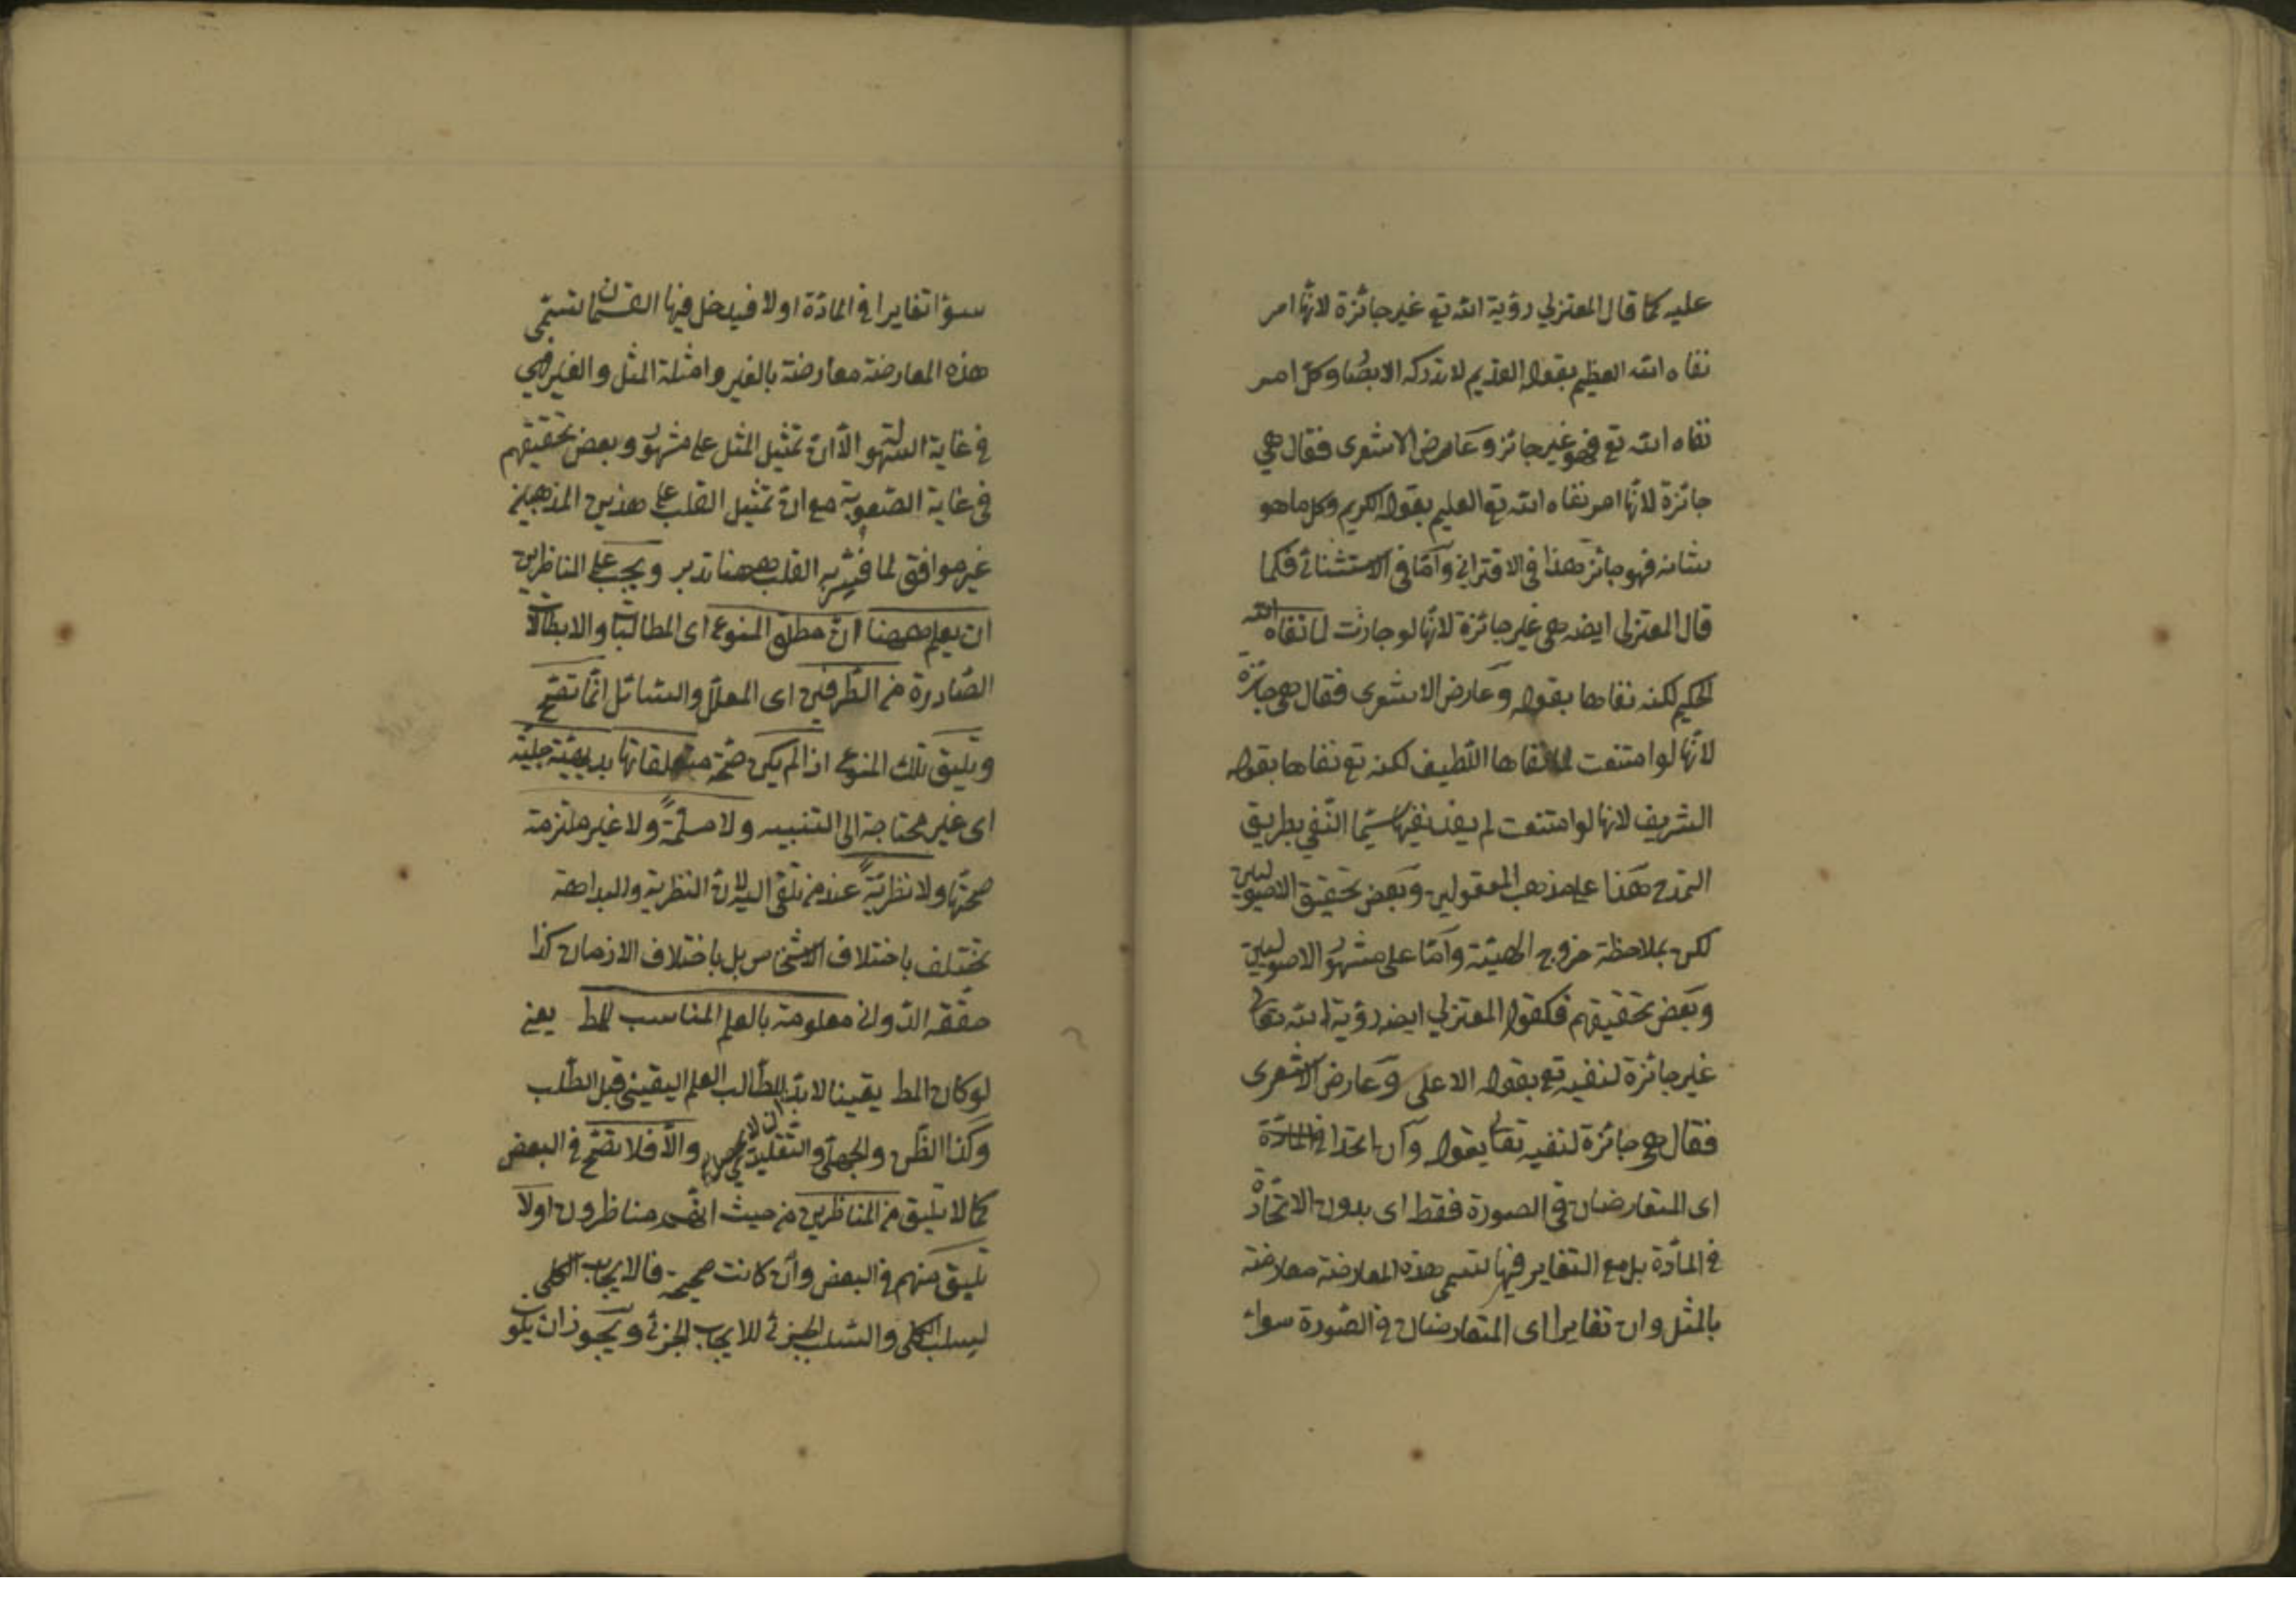 عليه كما قال المعتزلي رؤية الله تع غير جائزة لانها امر
نفاه الله العظيم بقوله القديم لا تدركه الابصار وكل امر
نفاه الله تع فهو غير جائز وعارض الاشعرى فقال هي
جائزة لانها امر نفاه الله تع العليم بقوله الكريم وكل ما هو
شانه فهو جائز هذا فى الاقتراني وامّا فى الاستثنائى فكما
قال المعتزلى ايضه هى غير جائزة لانها لو جازت لما نفاه الله
الحكيم لكنه نفاها بقوله وعارض الاشعرى فقال هى جائزة
لانها لو امتنعت لما نفاها اللطيف لكنه تع نفاها بقوله
الشريف لانها لو امتنعت لم يفد نفيها سيّما النّفي بطريق
التمدح هذا على مذهب المعقولين وبعض تحقيق الاصوليين
لكن بملاحظة خروج الهيئة وامّا على مشهور الاصوليين
وبعض تحقيقهم فكقول المعتزلي ايضه رؤية الله تعالى
غير جائزة لنفيه تع بقوله الاعلى وعارض الاشعرى
فقال هى جائزة لنفيه تعالى بقوله وان اتحدا
اى المتعارضان فى الصورة فقط اى بدون الاتحاد
فى المادّة بل مع التغاير فيها تسمى هذه المعارضة معارضة
بالمثل وان تغايرا اى المتعارضان فى الصّورة سواء
سوا تغايرا فى المادّة اولا فيدخل فيها القسمان تسمّى
هذه المعارضة معارضة بالغير وامثلة المثل والغير هي
فى غاية السهولة الّا انّ تمثيل المثل على مشهور وبعض تحقيقهم
فى غاية الصّعوبة مع انّ تمثيل القلب على هذين المذهبين
غير موافق لما فسّر به القلب ههنا تدبر ويجب على المناظرين
ان يعلم ههنا انّ مطلق المنوع اى المطالبات والابطالات
الصّادرة من الطّرفين اى المعلّل والسّائل انّما تصحّ
وتليق تلك المنوع اذا لم يكن صحّة متعلقاتها بديهيّة جليّة
اى غير محتاجة الى التنبيه ولا مسلّمةً ولا غير ملتزمة
صحتها ولا نظريّةً عند من تلقى اليه لانّ النظرية والبداهة
تختلف باختلاف الاشخاص بل باختلاف الازمان كذا
حقّقه الدّوانى معلومة بالعلم المناسب للمط يعنى
لو كان المط يقينا لا بدّ للطّالب العلم اليقينى قبل الطّلب
وكذا الظّن والجهل والتّقليد والّا فلا تصّح فى البعض
كما لا تليق من المناظرين من حيث انّهم مناظرون اولا
تليق منهم فى البعض وان كانت صحيحة فالايجاب الكلى
لسلب الكلى والسّلب الجزئى للايجاب الجزئى ويجوز ان يكو